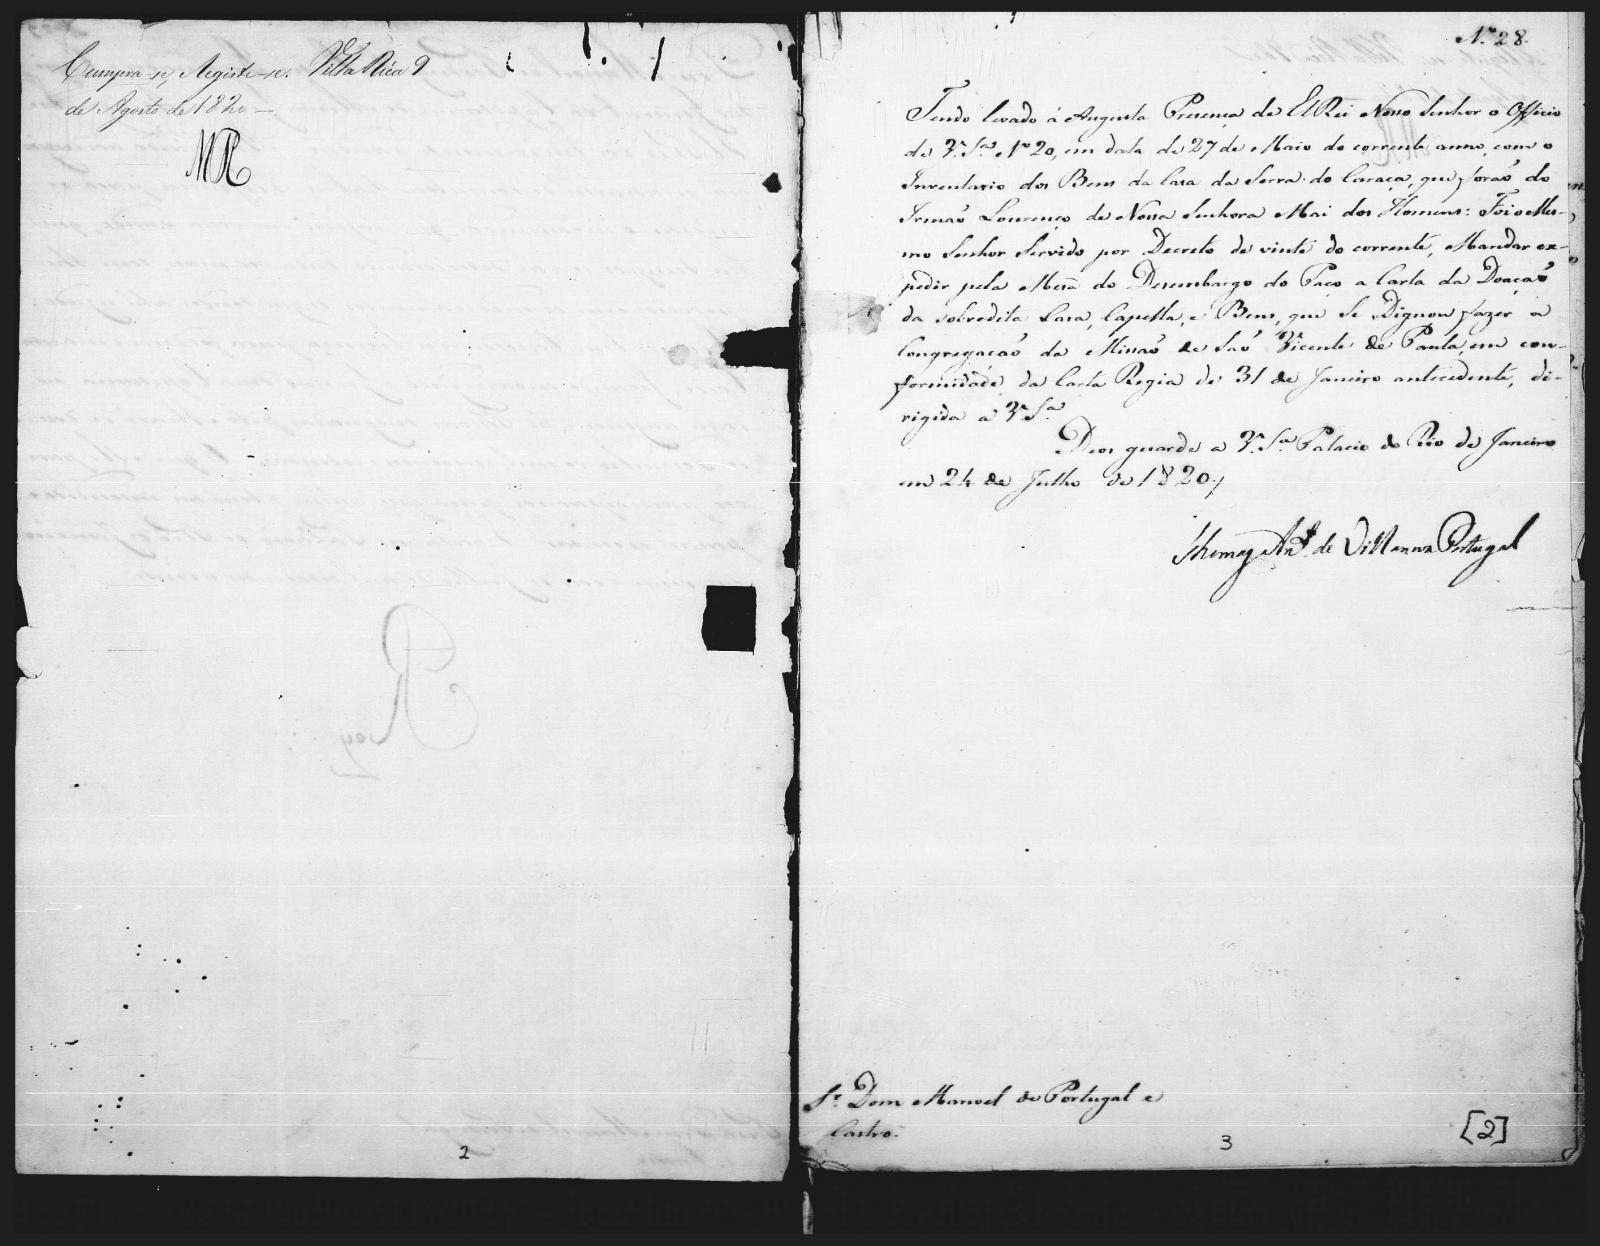 Cumpra-se, Registe-se. Villa Rica 9
de Agosto de 1820 —
2
N.º 28.
Tendo levado á Augusta Presença de ElRei Nosso Senhor o Officio
de V. S.ª Nº 20, em data de 27 de Maio do corrente anno, com o
Inventario dos Bens da Casa da Serra do Caraça, que forão do
Irmaõ Lourenço de Nossa Senhora Mai dos Homens: Foi o Mes-
mo Senhor Servido por Decreto de vinte do corrente, Mandar ex-
pedir pela Mesa do Desembargo do Paço a Carta da Doaçaõ
da sobredita Casa, Capella, e Bens, que Se Dignou fazer a
Congregaçaõ da Missaõ de Saõ Vicente de Paula, em con-
formidade da Carta Regia de 31 de Janeiro antecedente, di-
rigida a V. S.ª
Deos guarde a V. S.ª Palacio do Rio de Janeiro
em 24 de Julho de 1820./
Thomaz Ant.º de Villanova Portugal
S.r Dom Manoel de Portugal e
Castro.
3
[2]